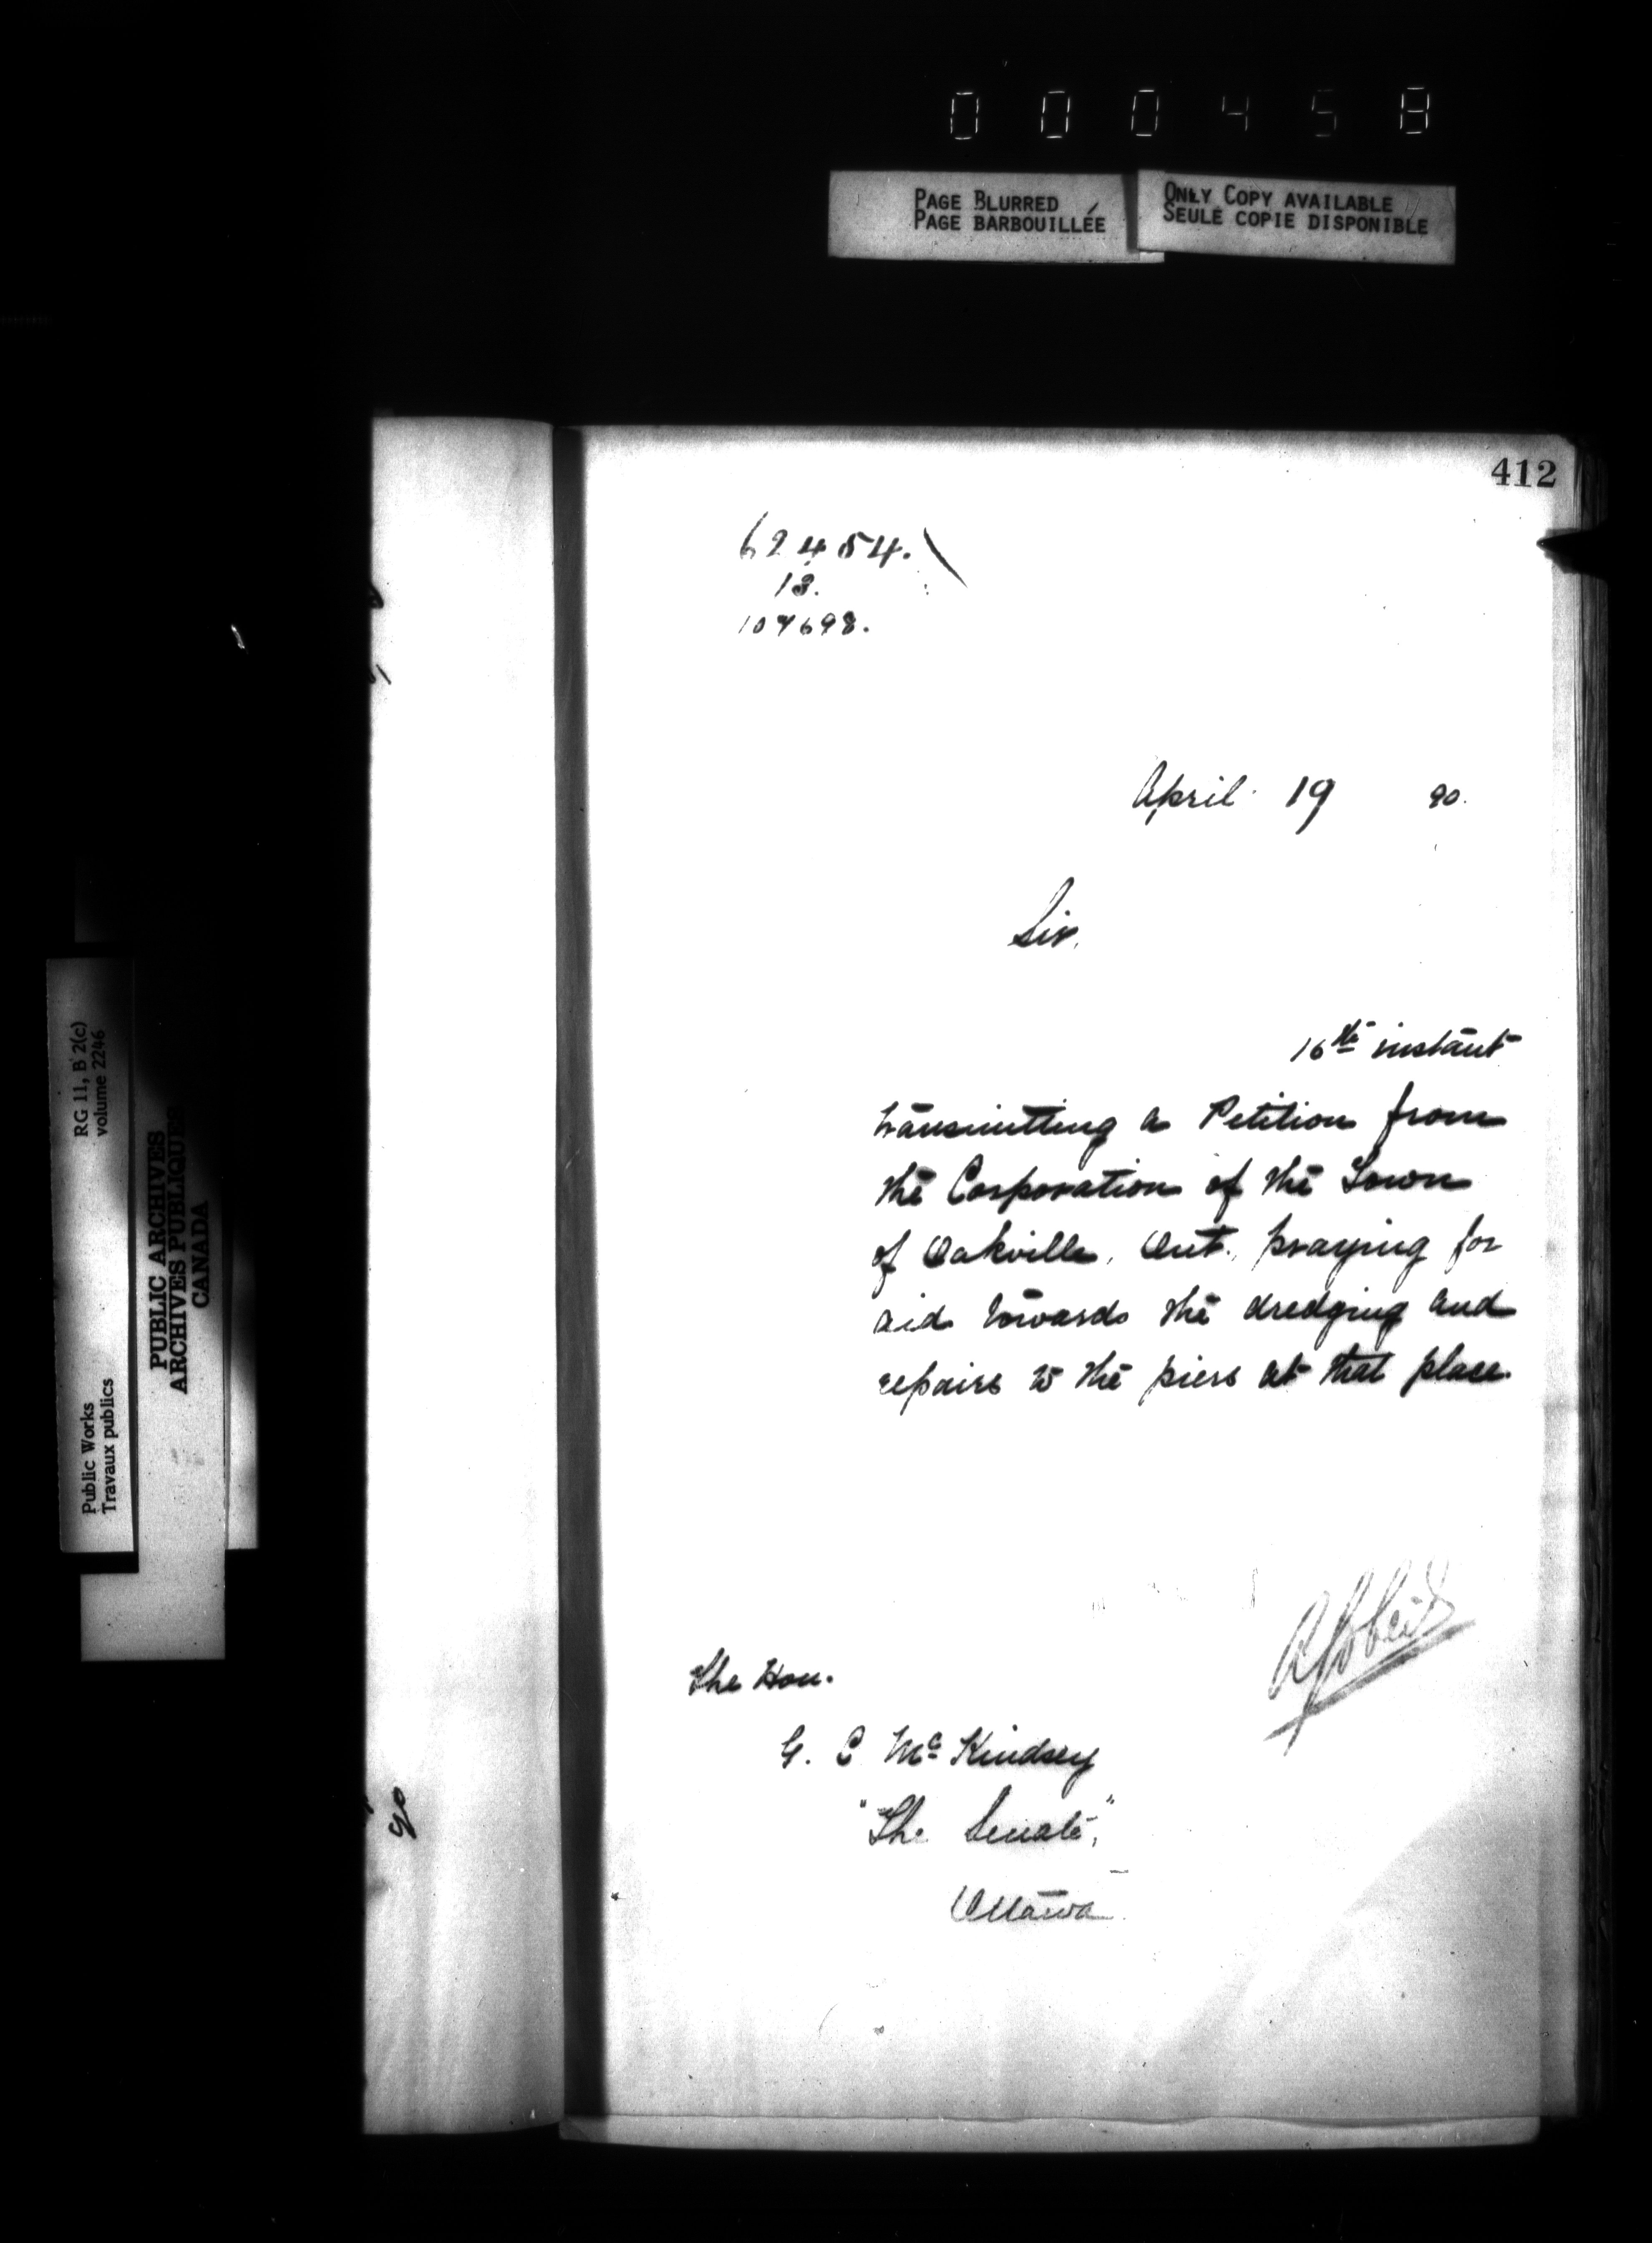 000458
PAGE BLURRED
PAGE BARBOUILLÉE
ONLY COPY AVAILABLE
SEULE COPIE DISPONIBLE
412
62454.
13.
107698.
April 19 90.
Sir,
16th instant
transmitting a Petition from
the Corporation of the Town
of Oakville, Ont., praying for
aid towards the dredging and
repairs to the piers at that place.
The Hon.
G. C McKindsey
"The Senate,"
Ottawa
RG 11, B 2(c)
volume 2246
Public Works
Travaux publics
PUBLIC ARCHIVES
ARCHIVES PUBLIQUES
CANADA